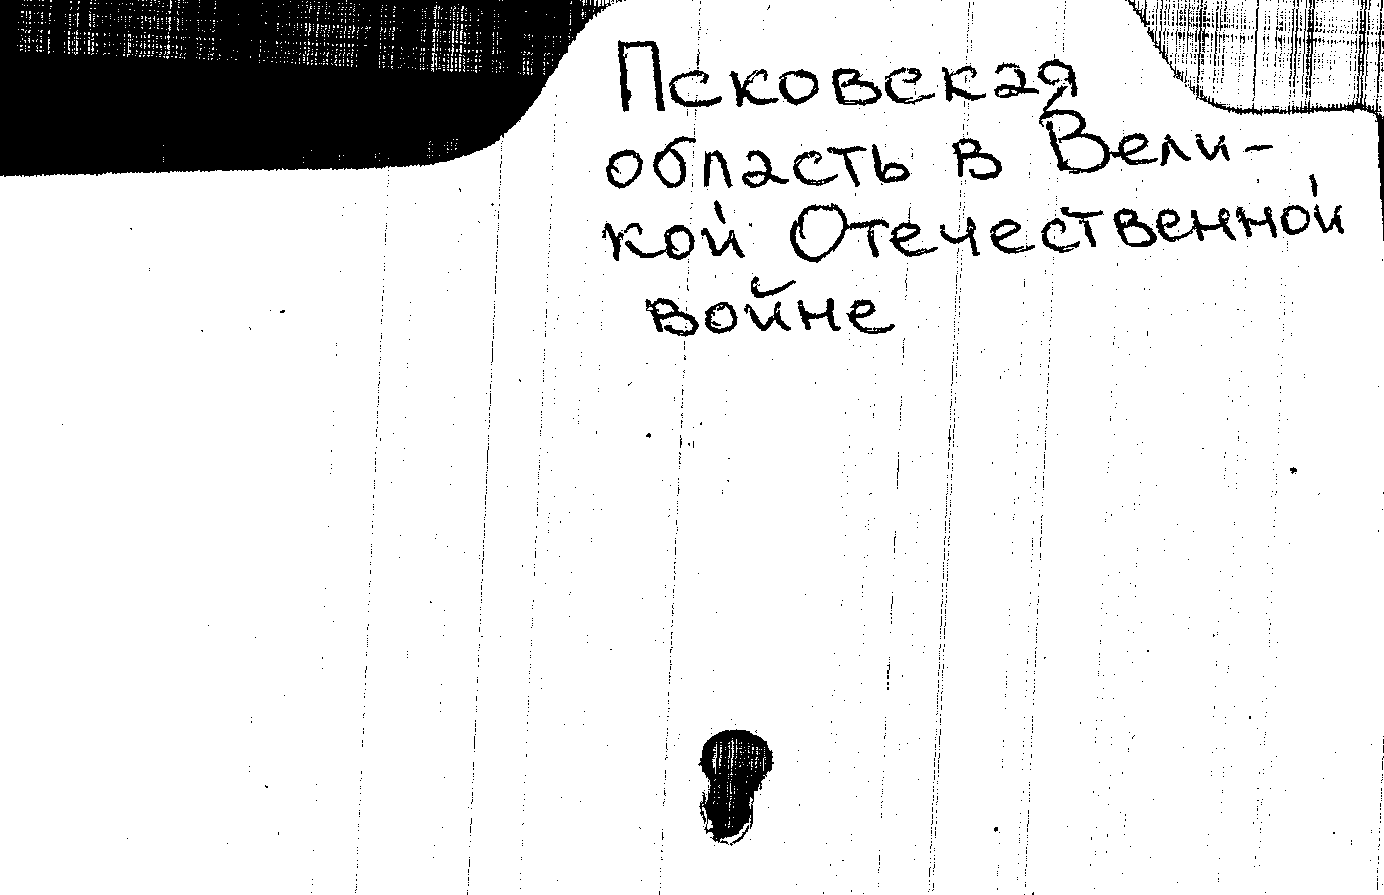 Псковская
область в Вели-
кой Отечественной
войне